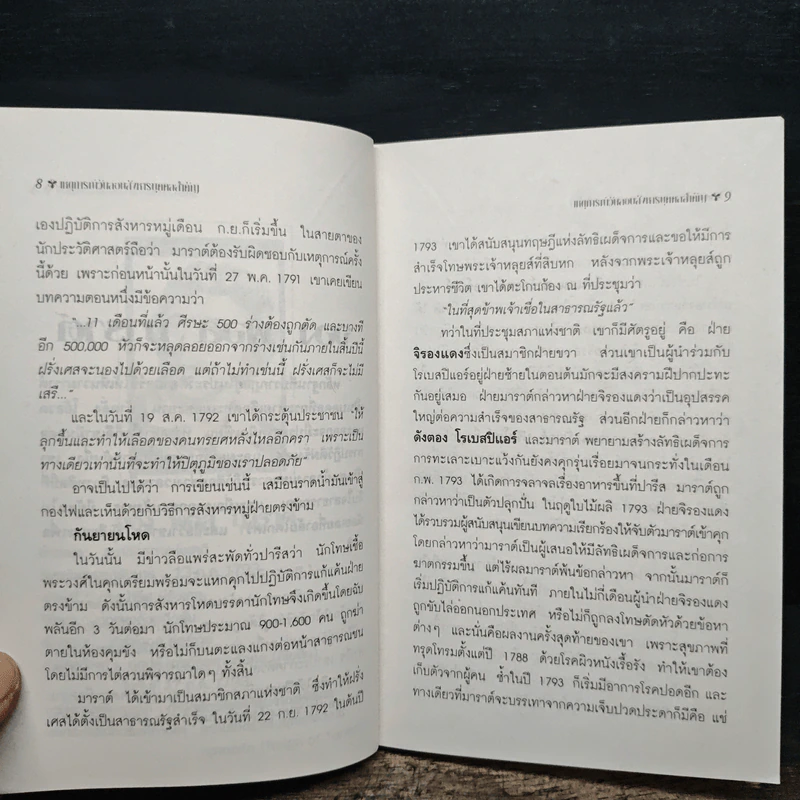 8 เหตุการณ์วันลอบสังหารบุคคลสำคัญ
เองปฏิบัติการสังหารหมู่เดือน ก.ย.ก็เริ่มขึ้น ในสายตาของ
นักประวัติศาสตร์ถือว่า มาราต์ต้องรับผิดชอบกับเหตุการณ์ครั้ง
นี้ด้วย เพราะก่อนหน้านั้นในวันที่ 27 พ.ค. 1791 เขาเคยเขียน
บทความตอนหนึ่งมีข้อความว่า
"...11 เดือนที่แล้ว ศีรษะ 500 ร่างต้องถูกตัด และบางที
อีก 500,000 หัวก็จะหลุดลอยออกจากร่างเช่นกันภายในสิ้นปีนี้
ฝรั่งเศสจะนองไปด้วยเลือด แต่ถ้าไม่ทำเช่นนี้ ฝรั่งเศสก็จะไม่มี
เสรี..."
และในวันที่ 19 ส.ค. 1792 เขาได้กระตุ้นประชาชน "ให้
ลุกขึ้นและทำให้เลือดของคนทรยศหลั่งไหลอีกครา เพราะเป็น
ทางเดียวเท่านั้นที่จะทำให้ปิตุภูมิของเราปลอดภัย"
อาจเป็นไปได้ว่า การเขียนเช่นนี้ เสมือนราดน้ำมันเข้าสู่
กองไฟและเห็นด้วยกับวิธีการสังหารหมู่ฝ่ายตรงข้าม
กันยายนโหด
ในวันนั้น มีข่าวลือแพร่สะพัดทั่วปารีสว่า นักโทษเชื้อ
พระวงศ์ในคุกเตรียมพร้อมจะแหกคุกไปปฏิบัติการแก้แค้นฝ่าย
ตรงข้าม ดังนั้นการสังหารโหดบรรดานักโทษจึงเกิดขึ้นโดยฉับ
พลันอีก 3 วันต่อมา นักโทษประมาณ 900-1,600 คน ถูกฆ่า
ตายในห้องคุมขัง หรือไม่ก็บนตะแลงแกงต่อหน้าสาธารณชน
โดยไม่มีการไต่สวนพิจารณาใดๆ ทั้งสิ้น
มาราต์ ได้เข้ามาเป็นสมาชิกสภาแห่งชาติ ซึ่งทำให้ฝรั่ง
เศสได้ตั้งเป็นสาธารณรัฐสำเร็จ ในวันที่ 22 ก.ย. 1792 ในต้นปี
เหตุการณ์วันลอบสังหารบุคคลสำคัญ 9
1793 เขาได้สนับสนุนทฤษฎีแห่งลัทธิเผด็จการและขอให้มีการ
สำเร็จโทษพระเจ้าหลุยส์ที่สิบหก หลังจากพระเจ้าหลุยส์ถูก
ประหารชีวิต เขาได้ตะโกนก้อง ณ ที่ประชุมว่า
"ในที่สุดข้าพเจ้าเชื่อในสาธารณรัฐแล้ว"
ทว่าในที่ประชุมสภาแห่งชาติ เขาก็มีศัตรูอยู่ คือ ฝ่าย
จิรองแดงซึ่งเป็นสมาชิกฝ่ายขวา ส่วนเขาเป็นผู้นำร่วมกับ
โรเบสปิแอร์อยู่ฝ่ายซ้ายในตอนต้นมักจะมีสงครามฝีปากปะทะ
กันอยู่เสมอ ฝ่ายมาราต์กล่าวหาฝ่ายจิรองแดงว่าเป็นอุปสรรค
ใหญ่ต่อความสำเร็จของสาธารณรัฐ ส่วนอีกฝ่ายก็กล่าวหาว่า
ดังตอง โรเบสปิแอร์ และมาราต์ พยายามสร้างลัทธิเผด็จการ
การทะเลาะเบาะแว้งกันยังคงคุกรุ่นเรื่อยมาจนกระทั่งในเดือน
ก.พ. 1793 ได้เกิดการจลาจลเรื่องอาหารขึ้นที่ปารีส มาราต์ถูก
กล่าวหาว่าเป็นตัวปลุกปั่น ในฤดูใบไม้ผลิ 1793 ฝ่ายจิรองแดง
ได้รวบรวมผู้สนับสนุนเขียนบทความเรียกร้องให้จับตัวมาราต์เข้าคุก
โดยกล่าวหาว่ามาราต์เป็นผู้เสนอให้มีลัทธิเผด็จการและก่อการ
ฆาตกรรมขึ้น แต่ไร้ผลมาราต์พ้นข้อกล่าวหา จากนั้นมาราต์ก็
เริ่มปฏิบัติการแก้แค้นทันที ภายในไม่กี่เดือนผู้นำฝ่ายจิรองแดง
ถูกขับไล่ออกนอกประเทศ หรือไม่ก็ถูกลงโทษตัดหัวด้วยข้อหา
ต่างๆ และนั่นคือผลงานครั้งสุดท้ายของเขา เพราะสุขภาพที่
ทรุดโทรมตั้งแต่ปี 1788 ด้วยโรคผิวหนังเรื้อรัง ทำให้เขาต้อง
เก็บตัวจากผู้คน ซ้ำในปี 1793 ก็เริ่มมีอาการโรคปอดอีก และ
ทางเดียวที่มาราต์จะบรรเทาจากความเจ็บปวดประดาก็มีคือ แช่